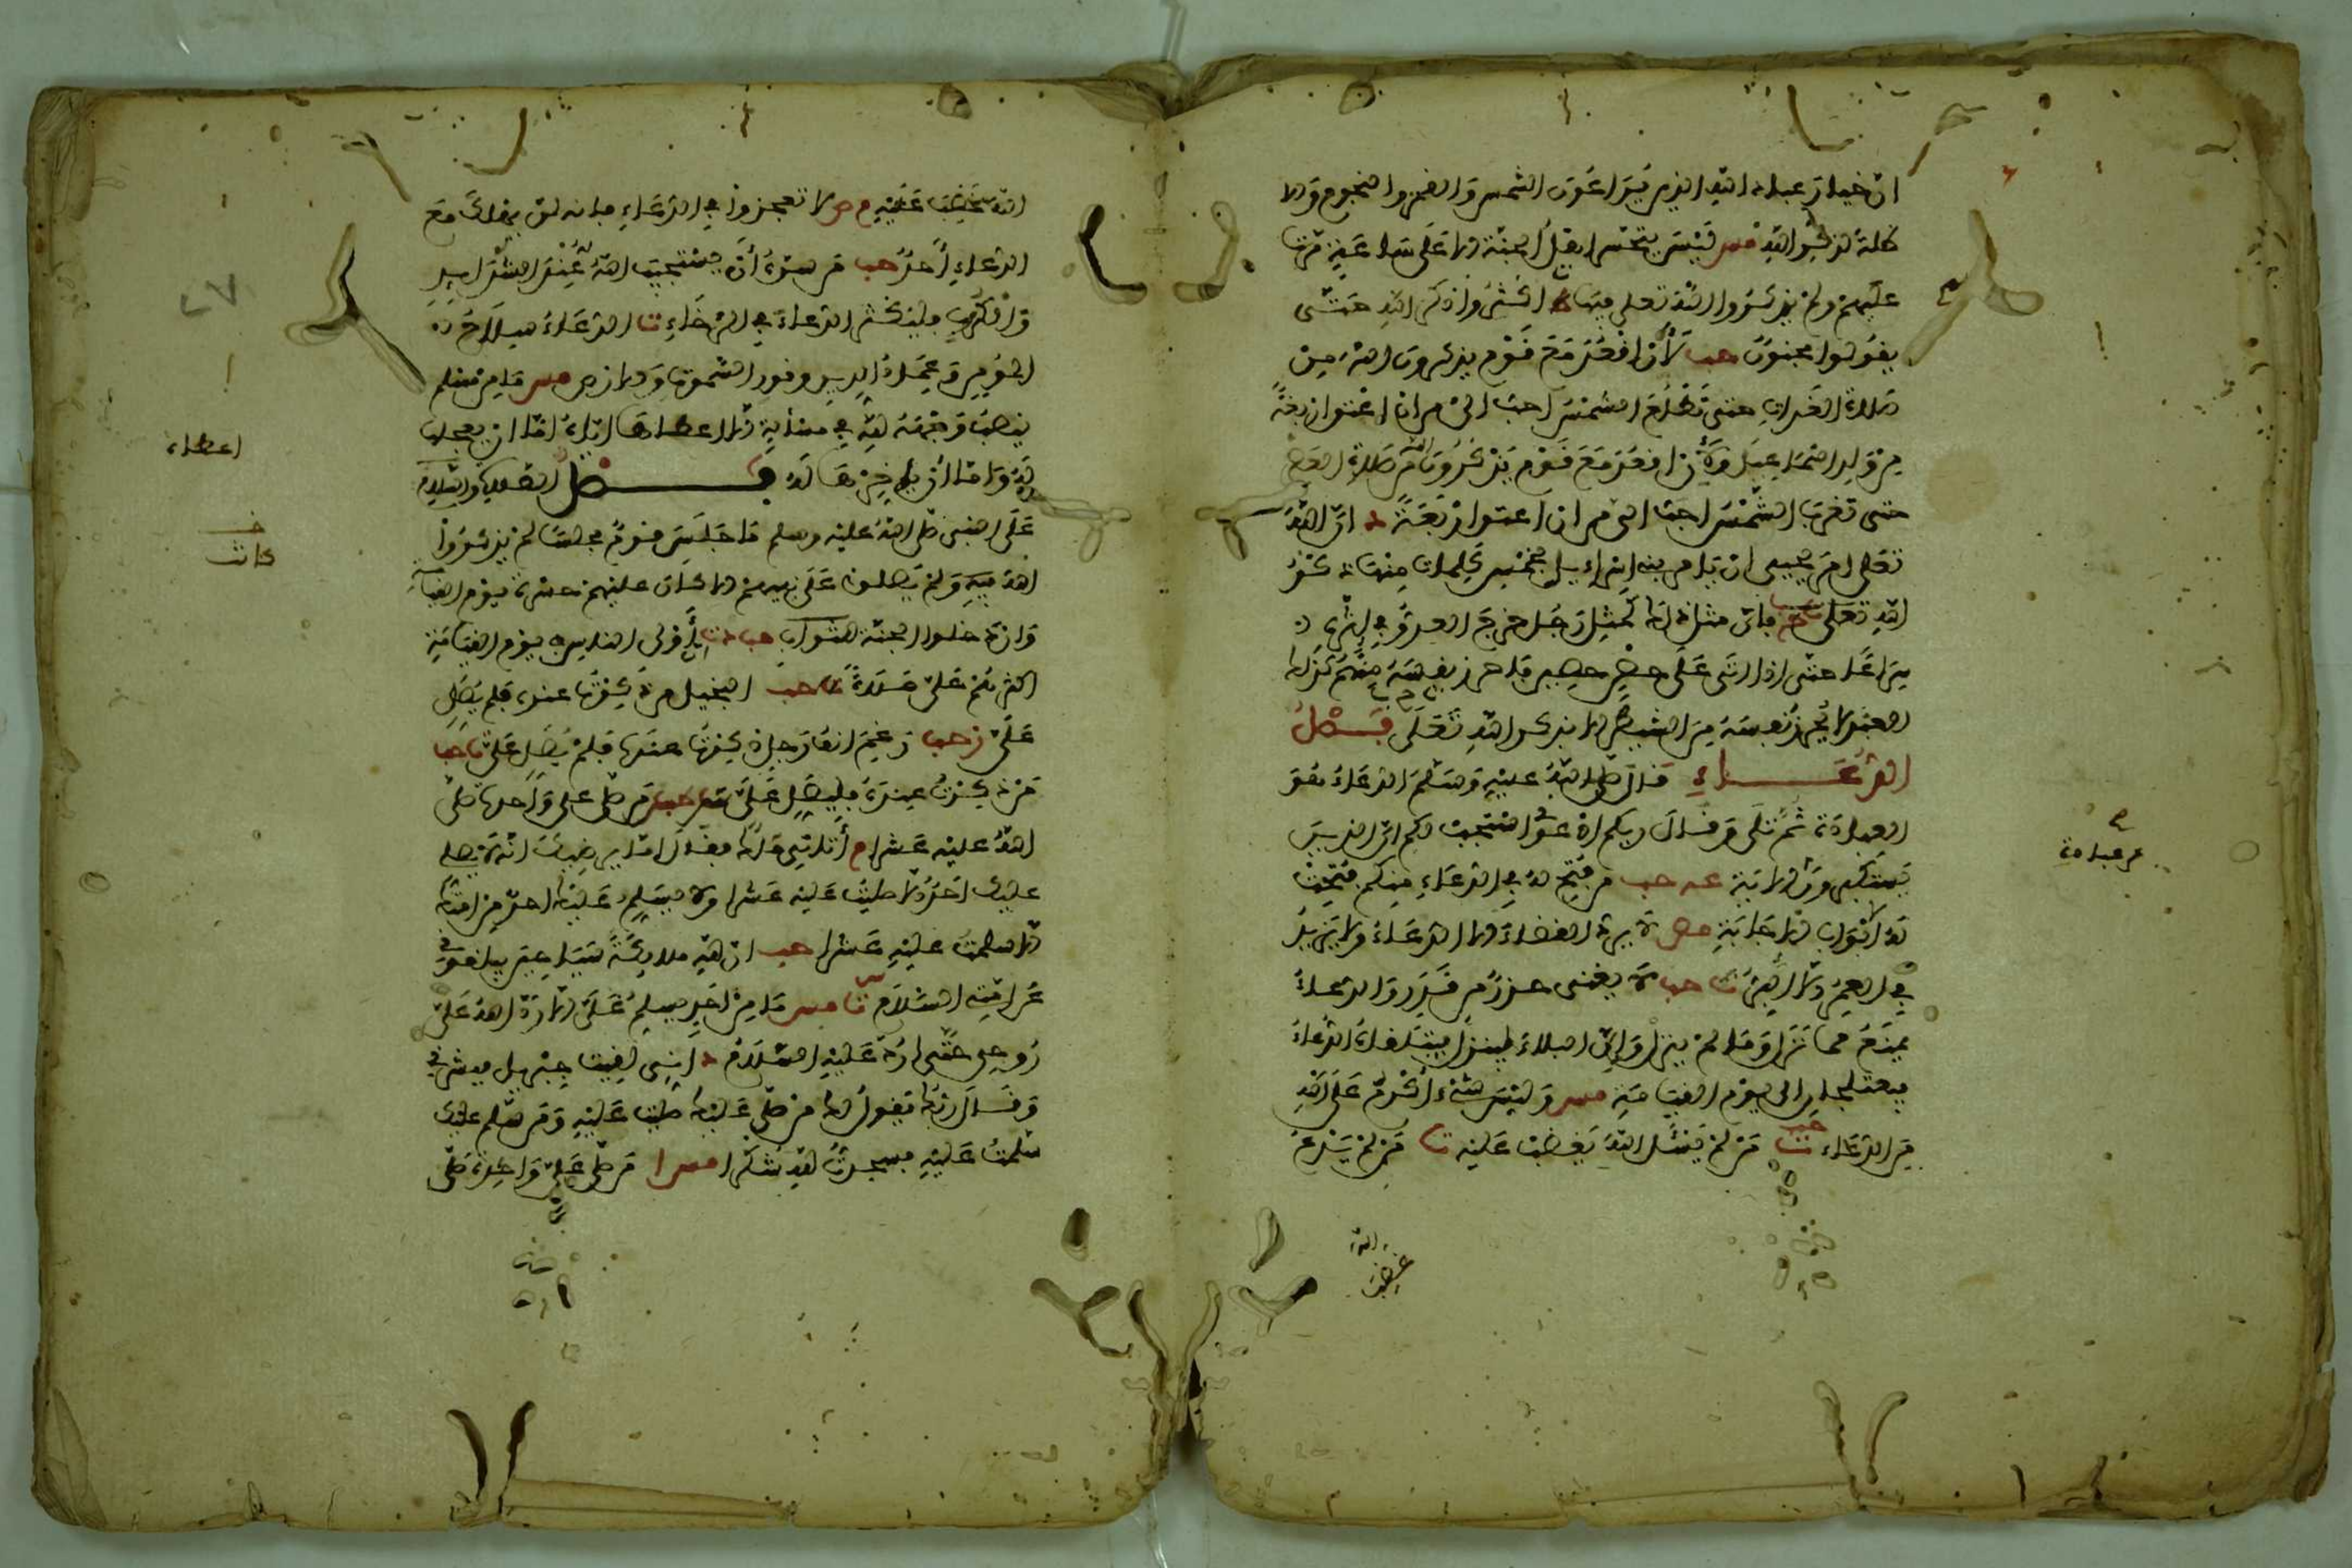 ان خيار عباد الله الذين يراعون الشمس والقمر والنجوم والا
ظلة لذكر الله مس ليس يتحسر اهل الجنة الا على ساعة مرت
عليهم ولم يذكروا الله تعلى فيها ط اكثروا ذكر الله حتى
يقولوا مجنون حب لأن اقعد مع قوم يذكرون الله من
صلاة الغداة حتى تطلع الشمس احب الي من ان اعتق اربعة
من ولد اسماعيل ولأن اقعد مع قوم يذكرون الله من صلاة العصر
حتى تغرب الشمس احب الي من ان اعتق اربعة د ان الله
تعلى امر يحيى ان يامر بني اسراءيل بخمس كلمات منها ذكر
الله تعلى فان مثل ذلك كمثل رجل خرج العدو في اثره
سراعا حتى اذا اتى على حصن حصين فاحرز نفسه منهم كذلك
العبد لا يحرز نفسه من الشيطن الا بذكر الله تعلى فصل
الدعاء قال صلى الله عليه وسلم الدعاء هو
العبادة ثم تلى وقال ربكم ادعوني استجب لكم ان الذين
يستكبرون الاية عه حب من فتح له في الدعاء منكم فتحت
له ابواب الاجابة مص لا يرد القضاء الا الدعاء ولا يزيد
في العمر الا البر ت حب لا يغني حذر من قدر والدعاء
ينفع مما نزل ومما لم ينزل وان البلاء لينزل فيتلقاه الدعاء
فيعتلجان الى يوم القيامة مس وليس شيء اكرم على الله
من الدعاء ت حب من لم يسئل الله يغضب عليه ت من لم يدع
الله غضب
من عبادة
الله يغضب عليه مص لا تعجزوا في الدعاء فانه لن يهلك مع
الدعاء أحد حب من سره أن يستجيب الله له عند الشدايد
والكرب فليكثر الدعاء في الرخاء ت الدعاء سلاح
المومن وعماد الدين ونور السموت والارض مس ما من مسلم
ينصب وجهه لله في مسألة الا اعطاها اياه اما ان يعجلها
له واما أن يدخرها له فصل الصلاة والسلام
على النبي صلى الله عليه وسلم ما جلس قوم مجلسا لم يذكروا
الله فيه ولم يصلوا على نبيهم الا كان عليهم حسرة يوم القيامة
وان دخلوا الجنة للثواب حب د ت أولى الناس بي يوم القيامة
اكثرهم علي صلاة ت حب البخيل من ذكرت عنده فلم يصل
علي ت حب رغم انف رجل ذكرت عنده فلم يصل علي ت حب
من ذكرت عنده فليصل علي من صلى علي واحدة صلى
الله عليه عشرا م أتاني ملك فقال اما يرضيك انه لا يصلي
عليك احد الا صليت عليه عشرا ولا يسلم عليك احد من امتك
الا سلمت عليه عشرا حب ان لله ملايكة سياحين يبلغوني
عن امتي السلام س حب مس ما من احد يسلم علي الا رد الله علي
روحي حتى ارد عليه السلام د اني لقيت جبريل فبشرني
وقال ربك يقول لك من صلى عليك صليت عليه ومن سلم عليك
سلمت عليه فسجدت لله شكرا مس ا من صلى علي واحدة صلى
٢٧
اعطاه
كانت